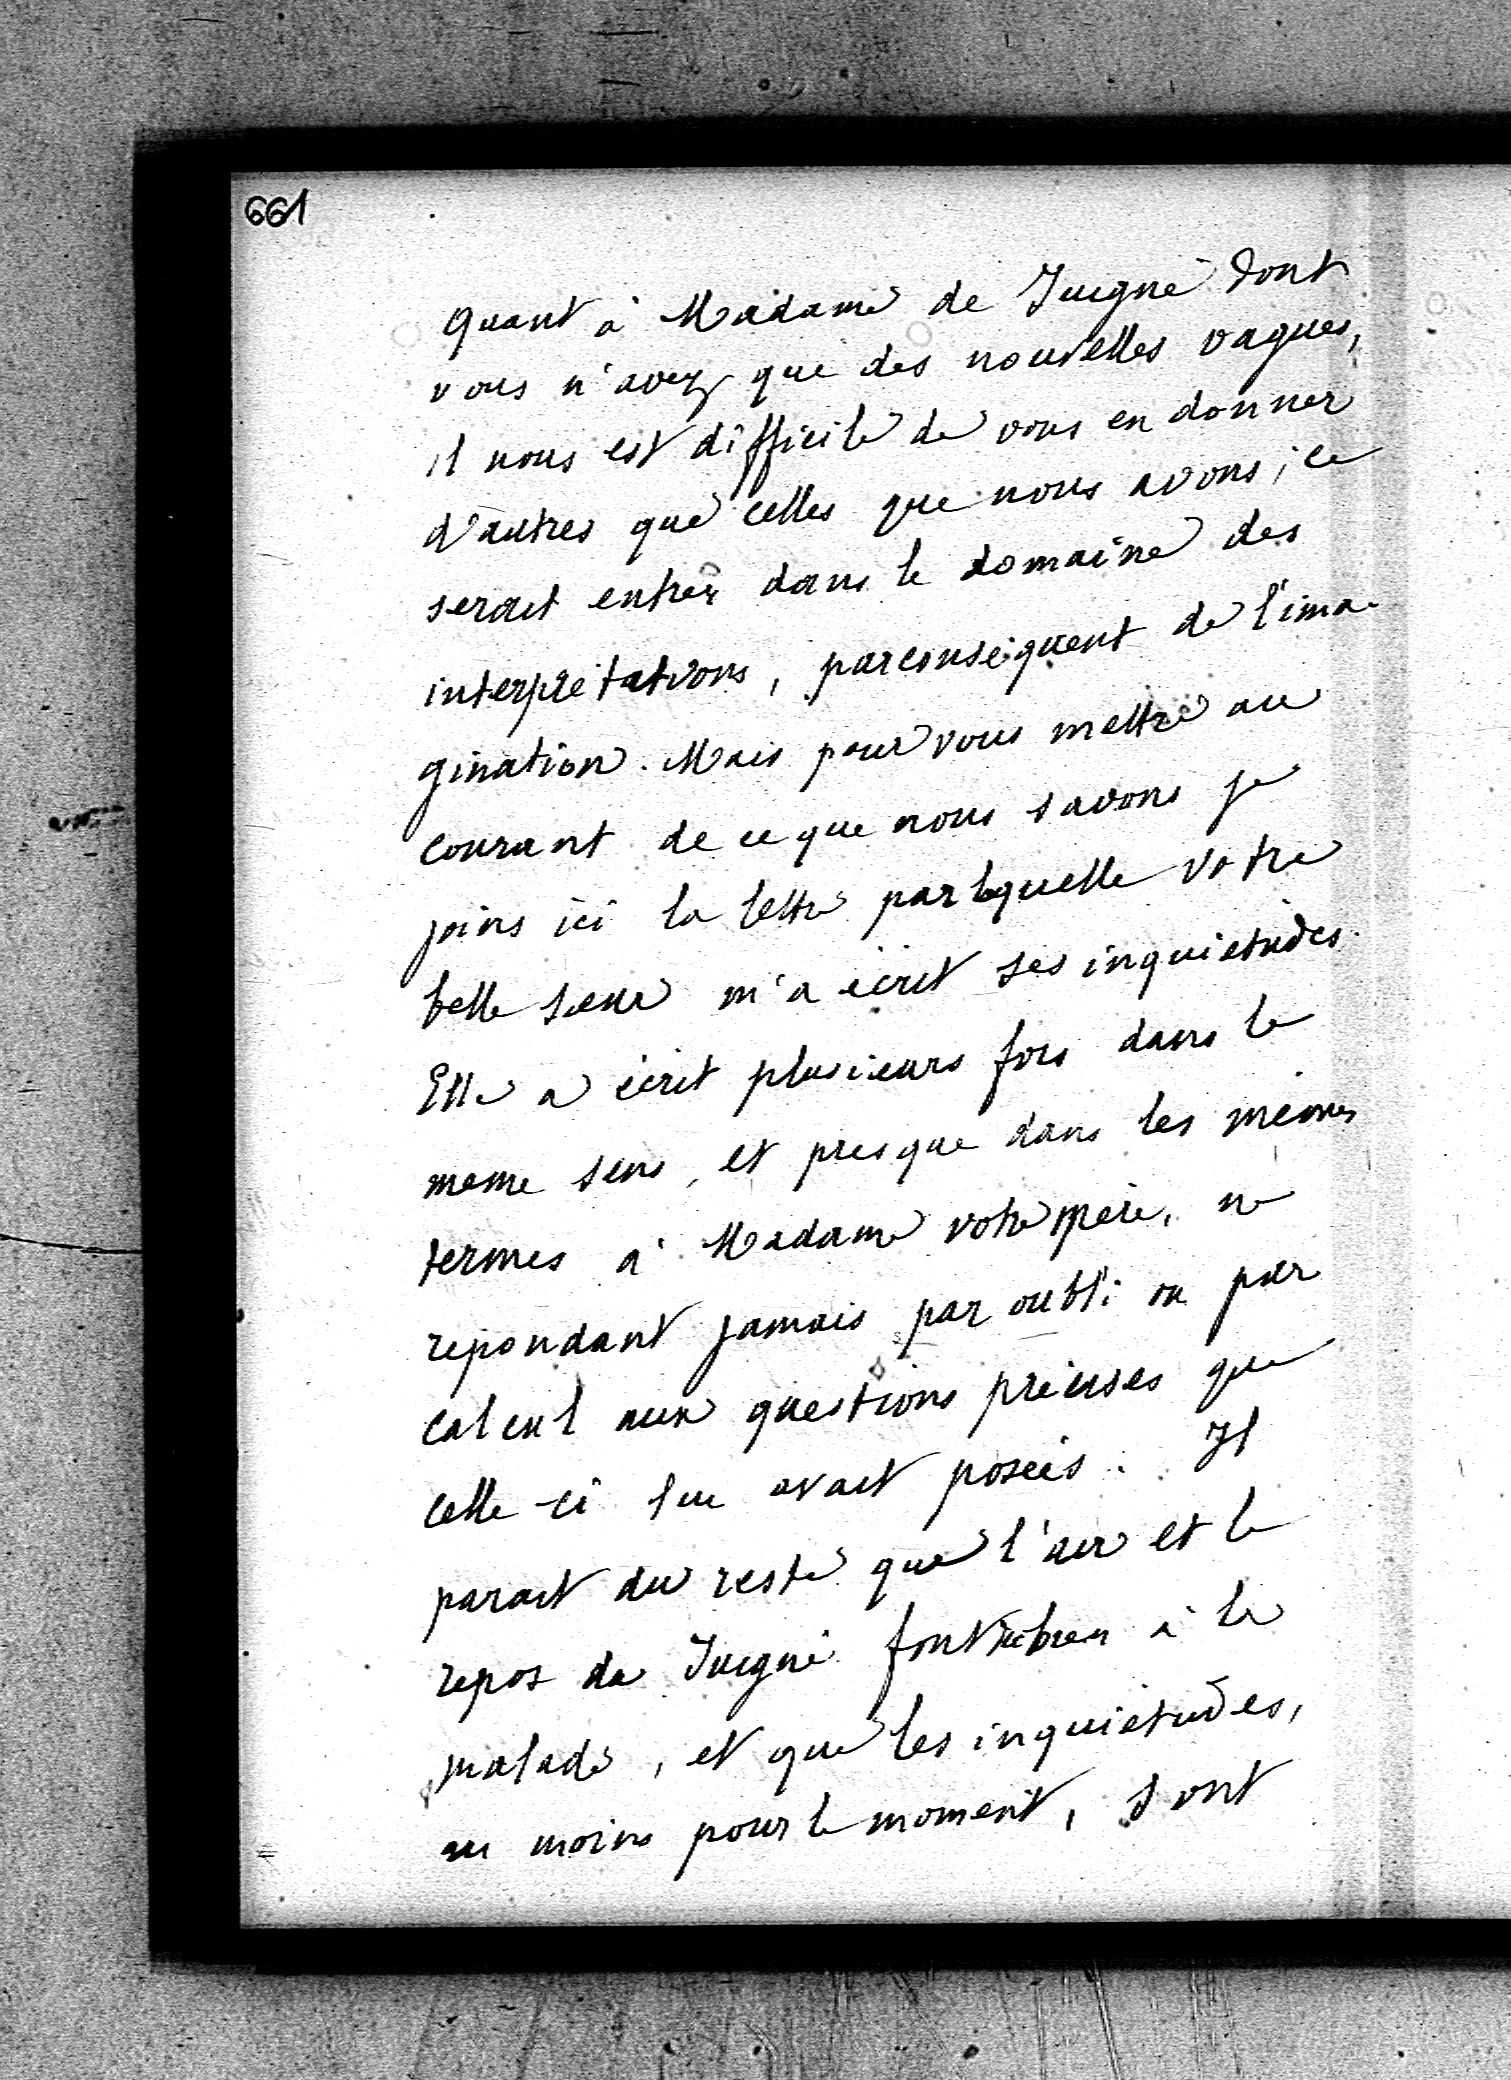 661
Quant à Madame de Juigné dont
vous n'avez que des nouvelles vagues,
il nous est difficile de vous en donner
d'autres que celles que nous avons ; ce
serait entrer dans le domaine des
interprétations, parconséquent de l'ima-
gination. Mais pour vous mettre au
courant de ce que nous savons je
joins ici la lettre par laquelle votre
belle sœur m'a écrit ses inquiétudes.
Elle a écrit plusieurs fois dans le
meme sens, et presque dans les mêmes
termes à Madame votre mère, ne
repondant jamais par oubli ou par
calcul aux questions précises que
celle-ci lui avait posées. Il
parait du reste que l'air et le
repos de Juigné font bien à la
malade, et que les inquiétudes,
au moins pour le moment, sont